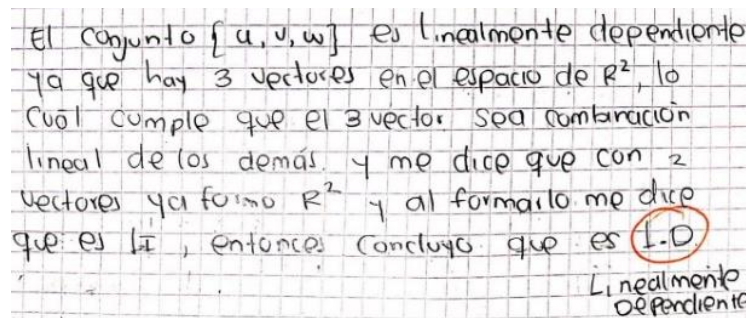 El conjunto {u, v, w} es linealmente dependiente
ya que hay 3 vectores en el espacio de R², lo
cuál cumple que el 3 vector sea combinación
lineal de los demás. y me dice que con 2
vectores ya formo R² y al formarlo me dice
que es LI, entonces concluyo que es L.D
Linealmente
Dependiente